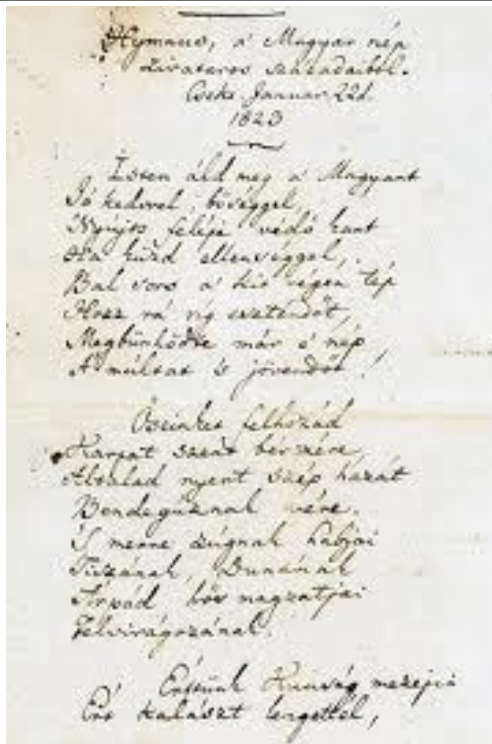 Hymnus, a' Magyar nép
zivataros századaiból.
Cseke Januar 22d.
1823
Isten áldd meg a' Magyart
Jó kedvvel, bőséggel,
Nyújts feléje védő kart
Ha küzd ellenséggel,
Bal sors a' kit régen tép
Hozz rá víg esztendőt,
Megbűnhődte már e' nép
A' múltat 's jövendőt!
Őseinket felhozád
Kárpát szent bérczére
Általad nyert szép hazát
Bendegúznak vére.
'S merre zúgnak habjai
Tiszának, Dunának
Árpád hős magzatjai
Felvirágozának.
Értünk Kunság mezejin
Ért kalászt lengettél,